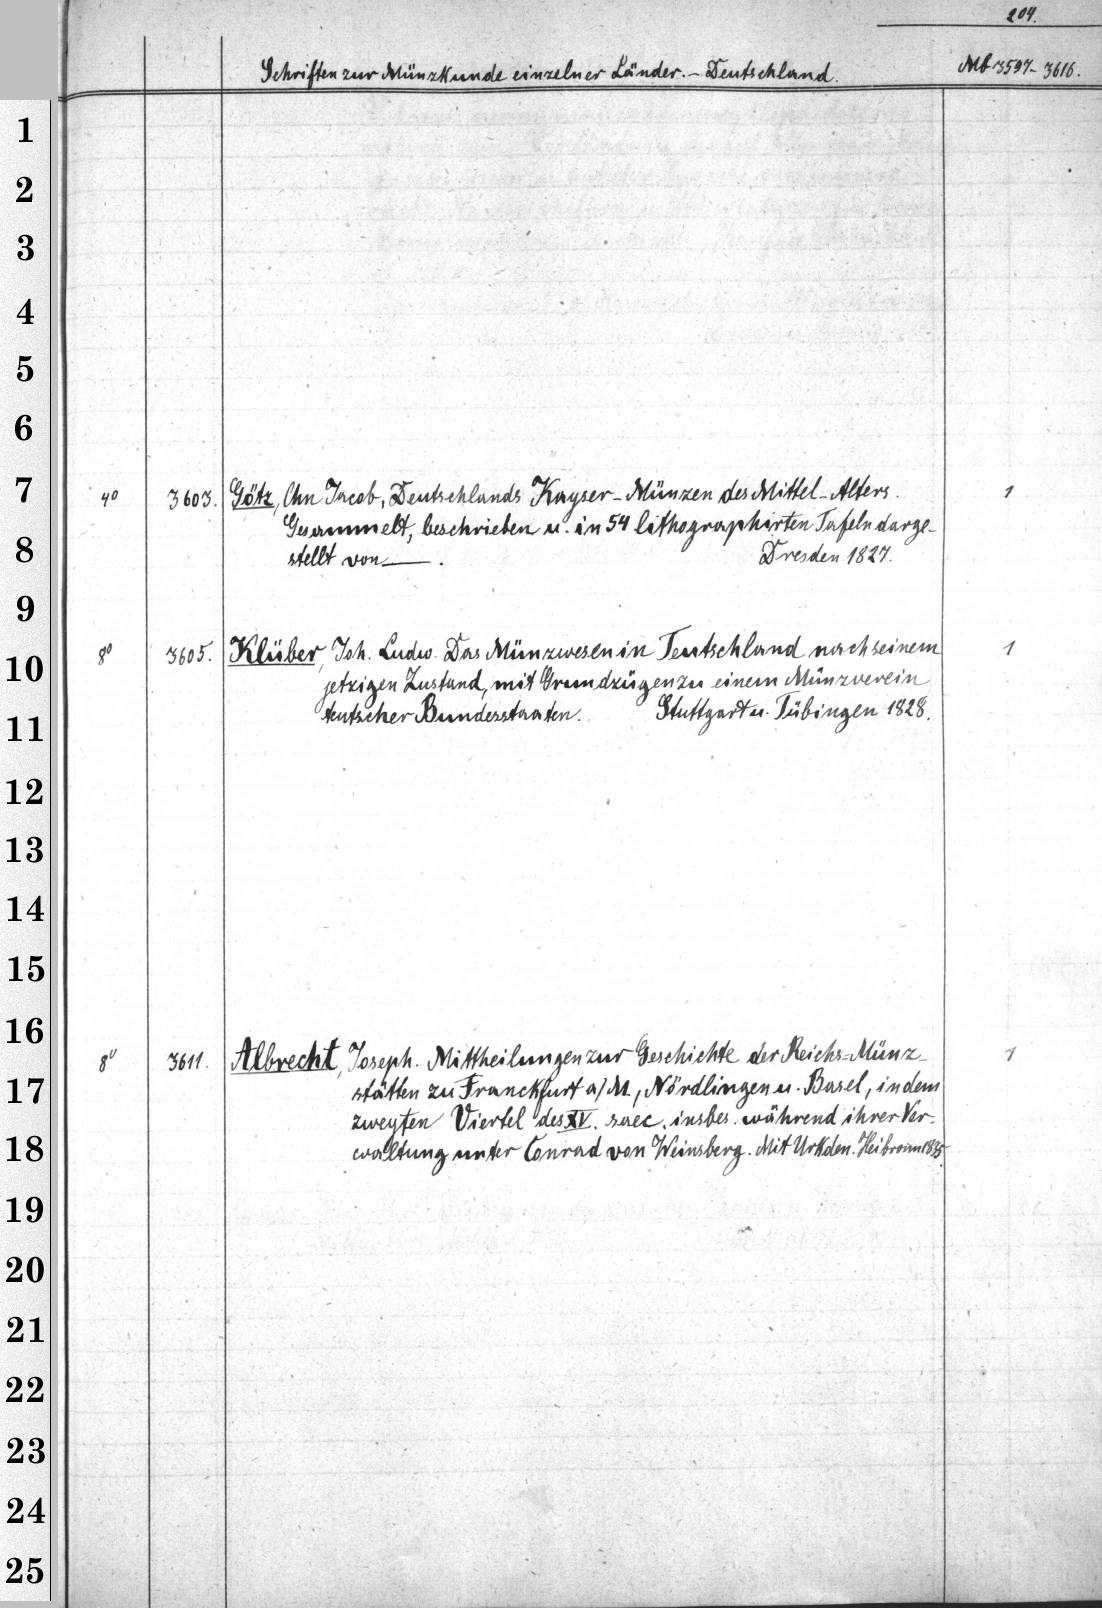 204.
Schriften zur Münzkunde einzelner Länder. – Deutschland.
Mb 3597–3616.
1
2
3
4
5
6
7
4° 3603. Götz, Chn Jacob, Deutschlands Kayser-Münzen des Mittel-Alters. 1
Gesammelt, beschrieben u. in 54 lithographirten Tafeln darge-
8
stellt von — . Dresden 1827.
9
8° 3605. Klüber, Joh. Ludw. Das Münzwesen in Teutschland nach seinem 1
10
jetzigen Zustand, mit Grundzügen zu einem Münzverein
teutscher Bundesstaaten. Stuttgart u. Tübingen 1828.
11
12
13
14
15
16
8° 3611. Albrecht, Joseph. Mittheilungen zur Geschichte der Reichs-Münz- 1
stätten zu Franckfurt a/M., Nördlingen u. Basel, in dem
17
zweyten Viertel des XV. saec. insbes. während ihrer Ver-
waltung unter Conrad von Weinsberg. Mit Urkden. Heibronn 1835.
18
19
20
21
22
23
24
25